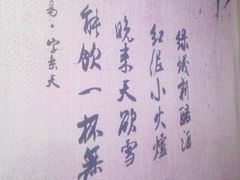 绿蚁新醅酒
红泥小火炉
晚来天欲雪
能饮一杯无
易·字乐天